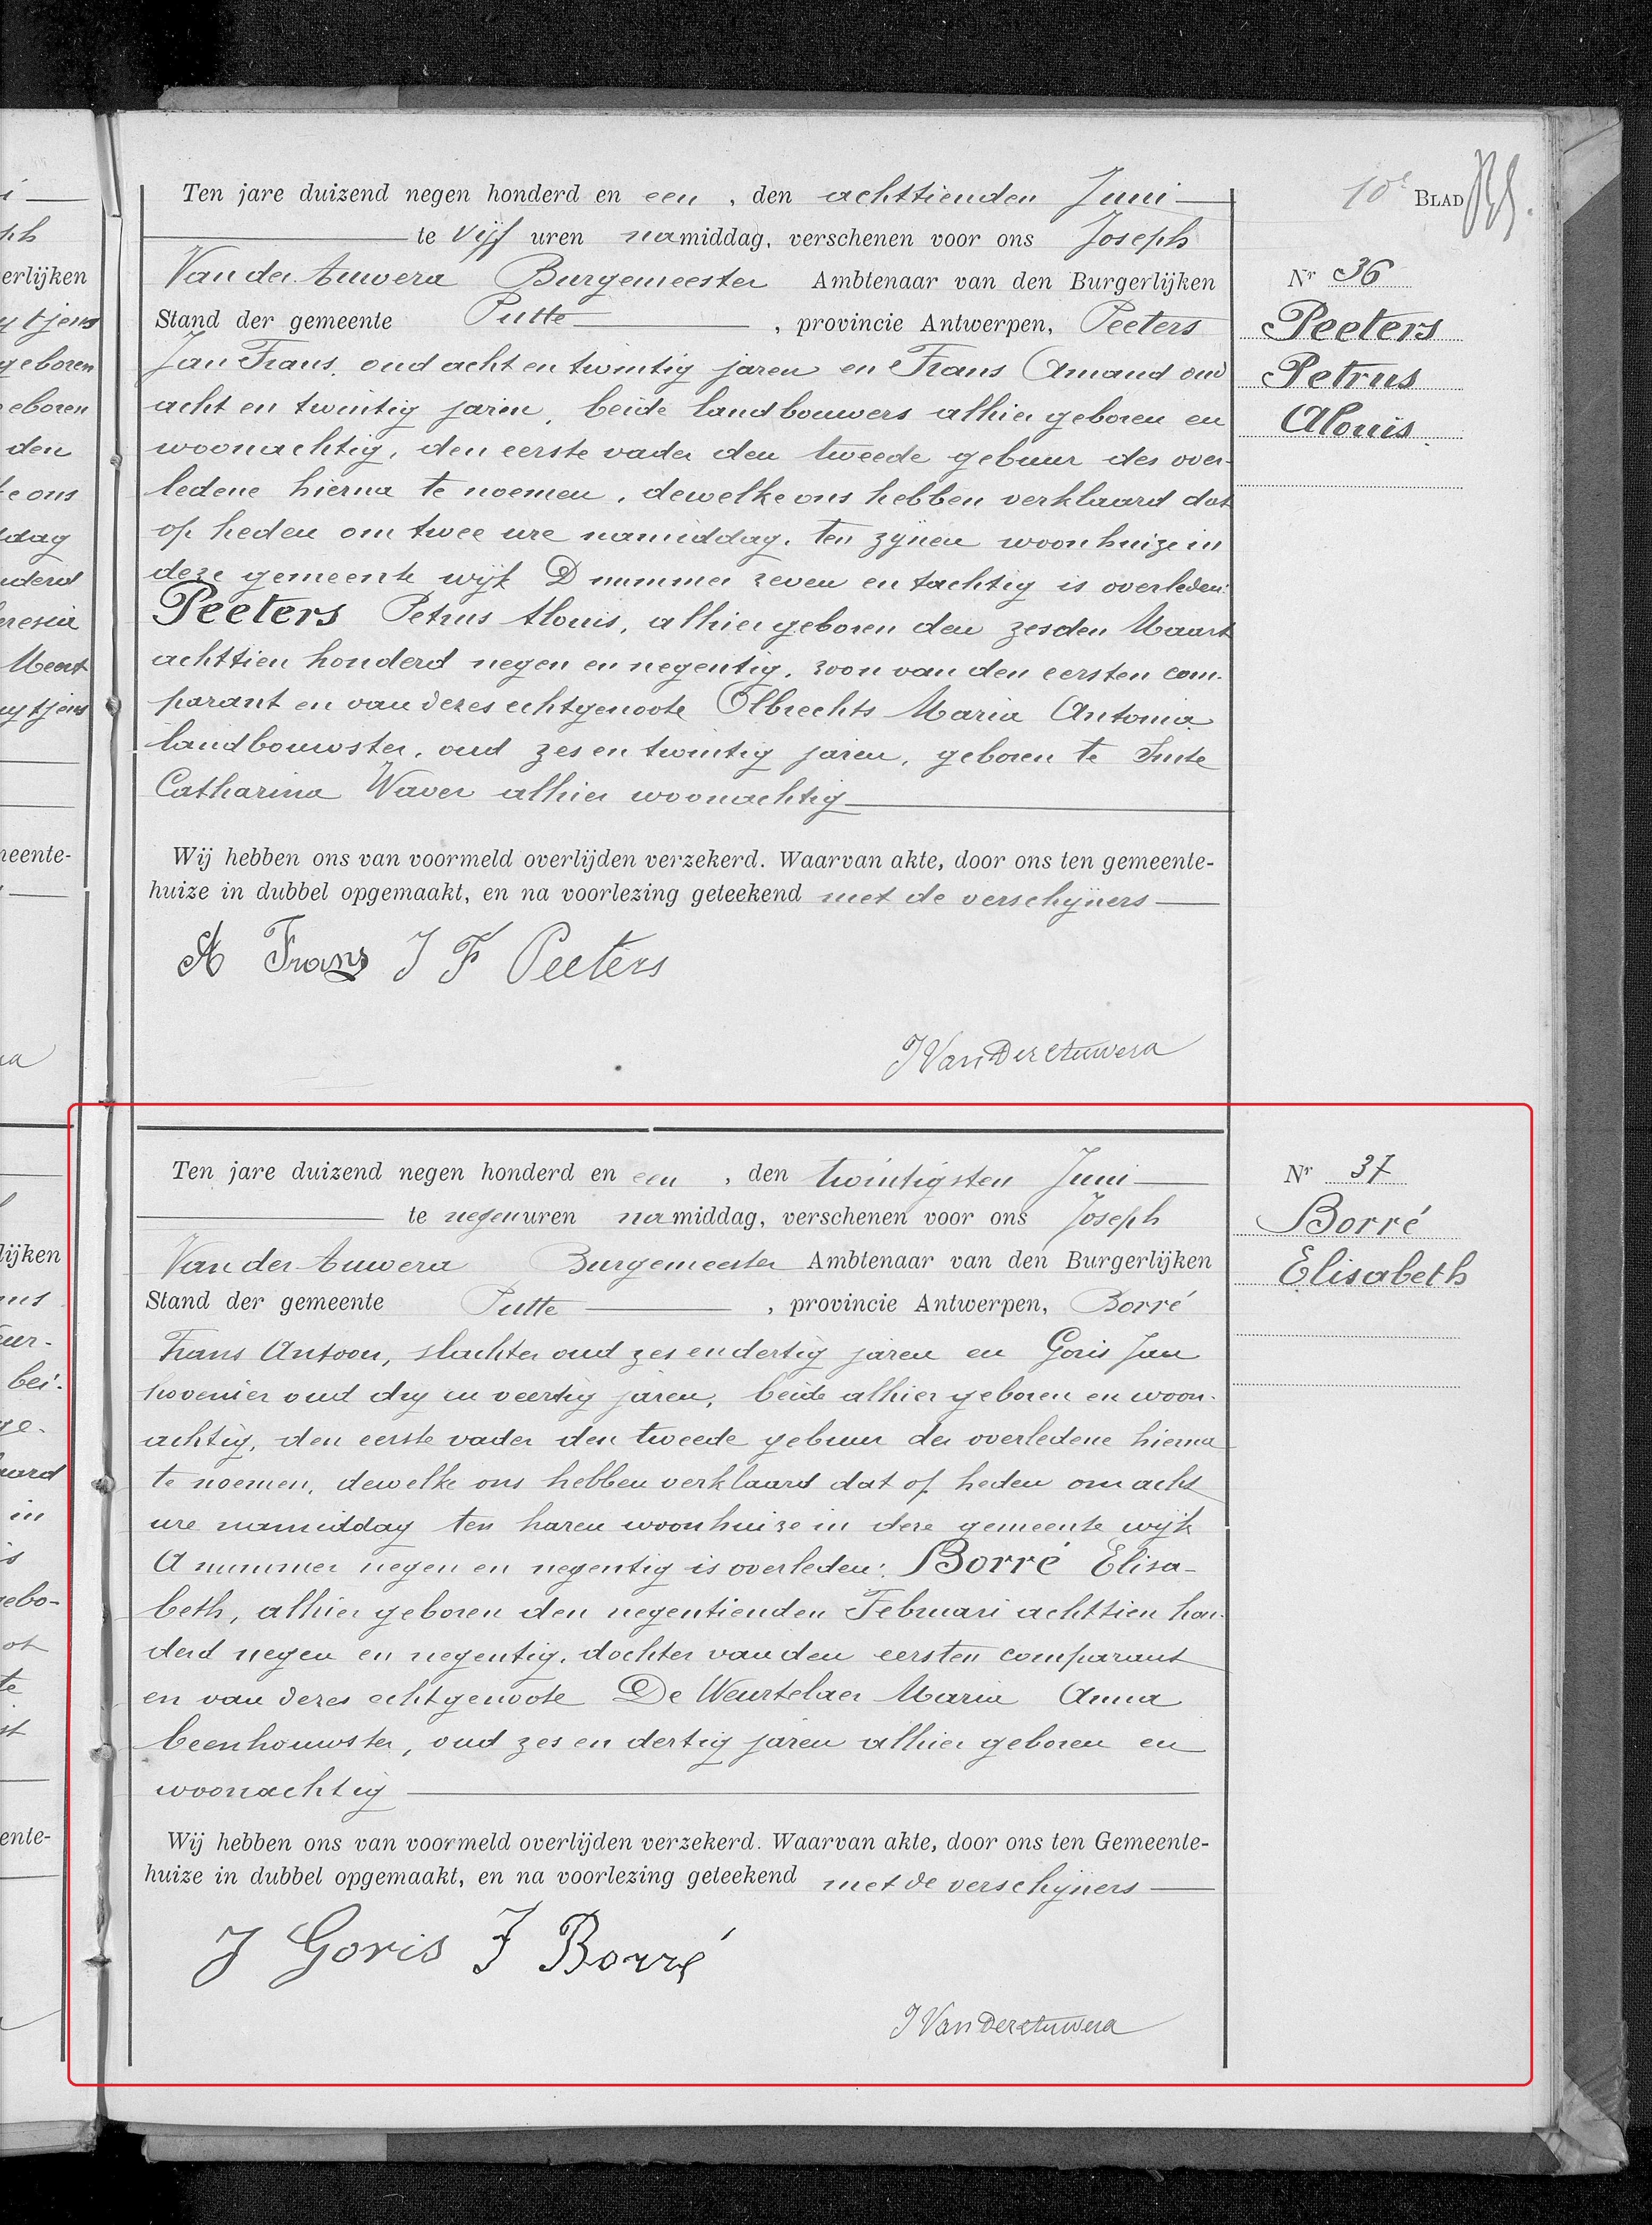 10e BLAD
Ten jare duizend negen honderd en een , den achttienden Juni
te vijf uren namiddag, verschenen voor ons Joseph
Van der Auwera Burgemeester Ambtenaar van den Burgerlijken
Stand der gemeente Putte , provincie Antwerpen, Peeters
Jan Frans, oud acht en twintig jaren en Frans Amand oud
acht en twintig jaren, beide landbouwers alhier geboren en
woonachtig, den eerste vader den tweede gebuur des over-
ledene hierna te noemen, dewelke ons hebben verklaard dat
op heden om twee ure namiddag, ten zijnen woonhuize in
deze gemeente wijk D nummer zeven en tachtig is overleden:
Peeters Petrus Alouis, alhier geboren den zesden Maart
achttien honderd negen en negentig, zoon van den eersten com-
parant en van dezes echtgenoote Olbrechts Maria Antonia
landbouwster, oud zes en twintig jaren, geboren te Sinte
Catharina Waver alhier woonachtig
Wij hebben ons van voormeld overlijden verzekerd. Waarvan akte, door ons ten gemeente-
huize in dubbel opgemaakt, en na voorlezing geteekend met de verschijners
A Frans J F Peeters
J Van Der Auwera
Nr 36
Peeters
Petrus
Alouis.
Ten jare duizend negen honderd en een , den twintigsten Juni
te negen uren namiddag, verschenen voor ons Joseph
Van der Auwera Burgemeester Ambtenaar van den Burgerlijken
Stand der gemeente Putte , provincie Antwerpen, Borré
Frans Antoon, slachter oud zes en dertig jaren en Goris Jan
hovenier oud dry en veertig jaren, beide alhier geboren en woon-
achtig, den eerste vader den tweede gebuur der overledene hierna
te noemen, dewelke ons hebben verklaard dat op heden om acht
ure namiddag ten haren woonhuize in deze gemeente wijk
A nummer negen en negentig is overleden: Borré Elisa-
beth, alhier geboren den negentienden Februari achttien hon-
derd negen en negentig, dochter van den eersten comparant
en van dezes echtgenoote De Weurtelaer Maria Anna
beenhouwster, oud zes en dertig jaren alhier geboren en
woonachtig
Wij hebben ons van voormeld overlijden verzekerd. Waarvan akte, door ons ten Gemeente-
huize in dubbel opgemaakt, en na voorlezing geteekend met de verschijners
J Goris F Borré
J Van Der Auwera
Nr 37
Borré
Elisabeth